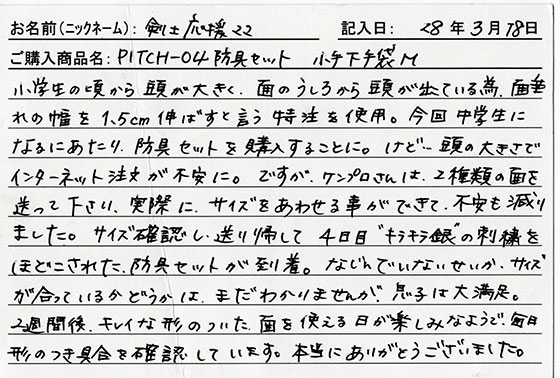 お名前(ニックネーム): 剣士応援22 記入日: 28年3月18日
ご購入商品名: PITCH-04 防具セット 小手下手袋M
小学生の頃から頭が大きく、面のうしろから頭が出ている為、面垂
れの幅を1.5cm伸ばすと言う特注を使用。今回中学生に
なるにあたり、防具セットを購入することに。けど…頭の大きさで
インターネット注文が不安に。ですが、ケンプロさんは、2種類の面を
送って下さい、実際に、サイズをあわせる事ができて、不安も減り
ました。サイズ確認し、送り帰して4日目"キラキラ銀"の刺繍を
ほどこされた、防具セットが到着。なじんでいないせいか、サイズ
が合っているかどうかは、まだわかりませんが、息子は大満足。
2週間後、キレイな形のついた、面を使える日が楽しみなようで、毎日
形のつき具合を確認しています。本当にありがとうございました。